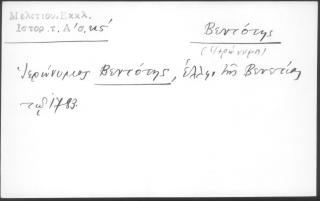 Μελετίου. Εκκλ.
Ιστορ. τ. Α΄σ, κς΄
Βεντότης
(Ιερώνυμη)
Ἱερώνυμος Βεντότης, Ἕλλην τῆς Βενετίας
τῷ 1783.